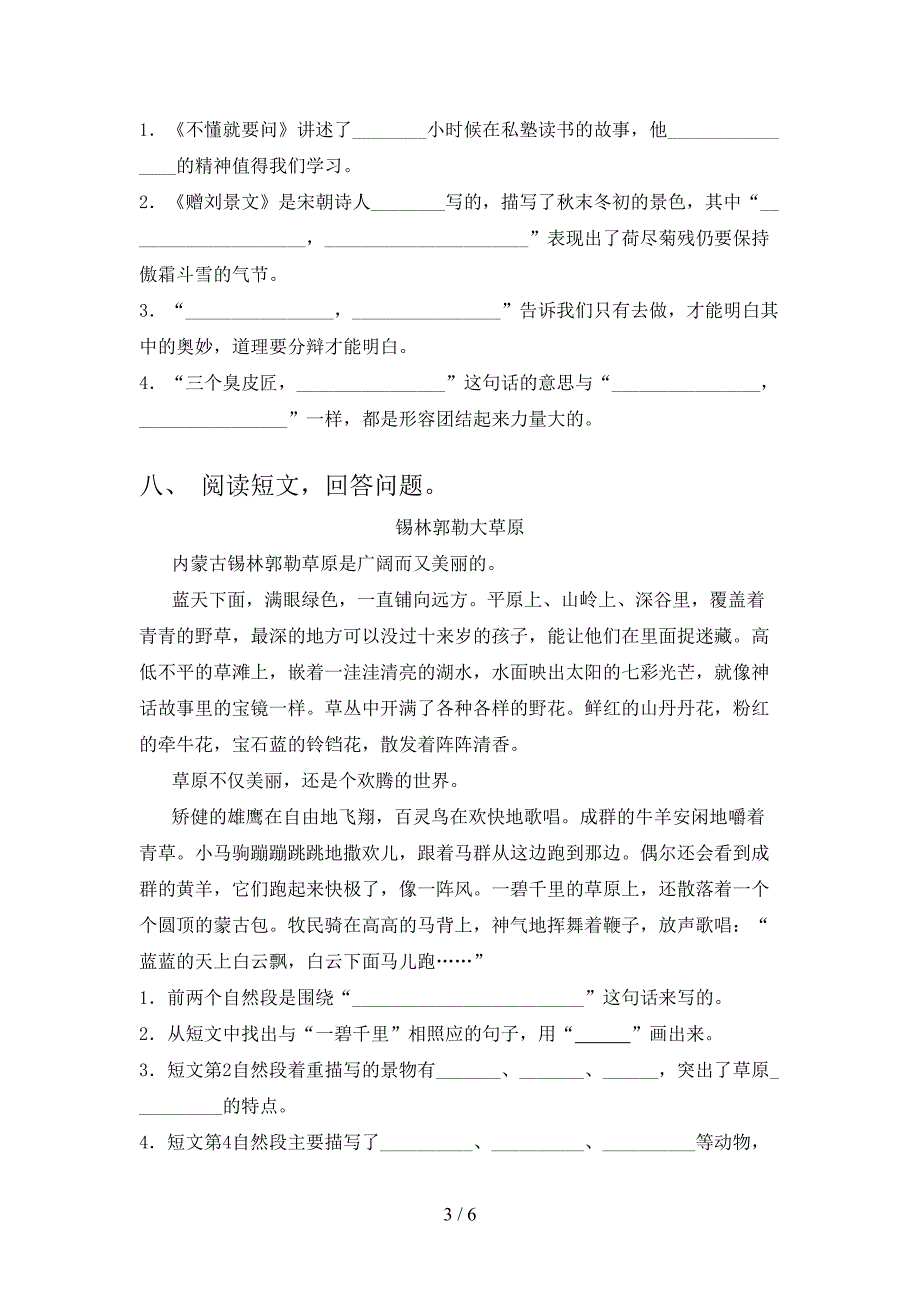 1．《不懂就要问》讲述了________小时候在私塾读书的故事，他____________
____的精神值得我们学习。
2．《赠刘景文》是宋朝诗人________写的，描写了秋末冬初的景色，其中“__
__________________，______________________”表现出了荷尽菊残仍要保持
傲霜斗雪的气节。
3．“________________，________________”告诉我们只有去做，才能明白其
中的奥妙，道理要分辩才能明白。
4．“三个臭皮匠，________________”这句话的意思与“________________，
________________”一样，都是形容团结起来力量大的。
八、 阅读短文，回答问题。
锡林郭勒大草原
内蒙古锡林郭勒草原是广阔而又美丽的。
蓝天下面，满眼绿色，一直铺向远方。平原上、山岭上、深谷里，覆盖着
青青的野草，最深的地方可以没过十来岁的孩子，能让他们在里面捉迷藏。高
低不平的草滩上，嵌着一洼洼清亮的湖水，水面映出太阳的七彩光芒，就像神
话故事里的宝镜一样。草丛中开满了各种各样的野花。鲜红的山丹丹花，粉红
的牵牛花，宝石蓝的铃铛花，散发着阵阵清香。
草原不仅美丽，还是个欢腾的世界。
矫健的雄鹰在自由地飞翔，百灵鸟在欢快地歌唱。成群的牛羊安闲地嚼着
青草。小马驹蹦蹦跳跳地撒欢儿，跟着马群从这边跑到那边。偶尔还会看到成
群的黄羊，它们跑起来快极了，像一阵风。一碧千里的草原上，还散落着一个
个圆顶的蒙古包。牧民骑在高高的马背上，神气地挥舞着鞭子，放声歌唱：“
蓝蓝的天上白云飘，白云下面马儿跑……”
1．前两个自然段是围绕“_________________________”这句话来写的。
2．从短文中找出与“一碧千里”相照应的句子，用“______”画出来。
3．短文第2自然段着重描写的景物有_______、_______、______，突出了草原_
_________的特点。
4．短文第4自然段主要描写了__________、__________、__________等动物，
3 / 6